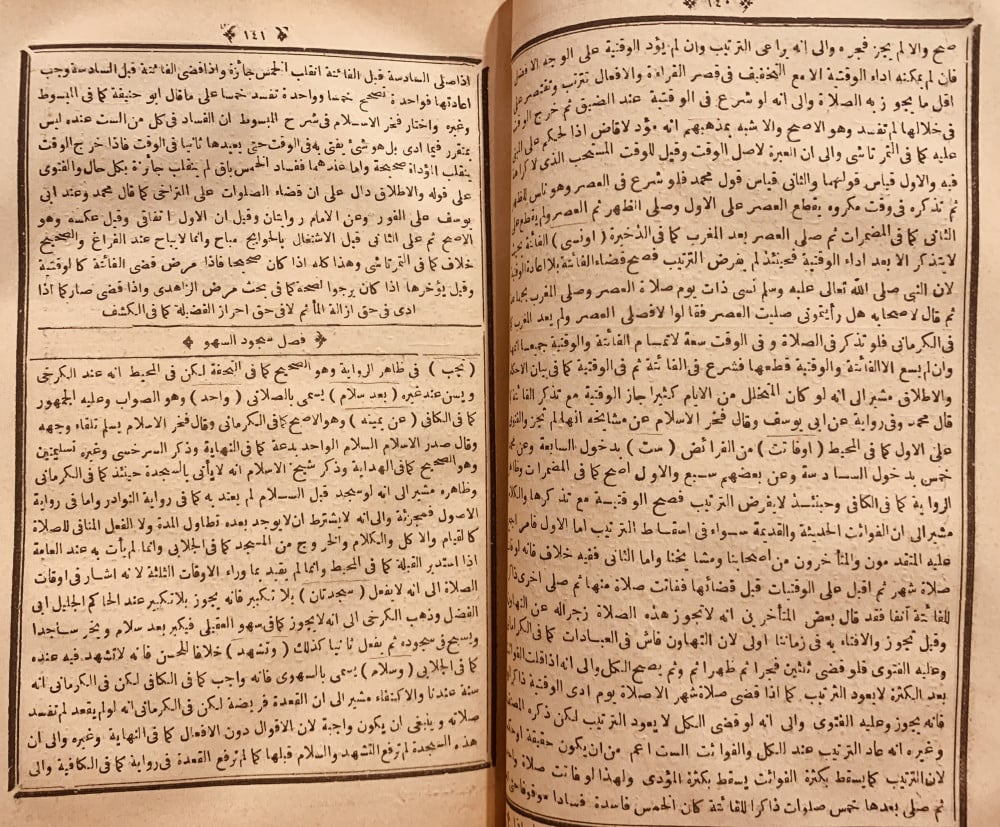 ١٤٠
صح والا لم يجز فجره والى انه يراعى الترتيب وان لم يؤد الوقتية على الوجه الافضل
فان لم يمكنه اداء الوقتية الا مع التخفيف فى قصر القراءة والافعال تترتب ويقتصر على
اقل ما يجوز به الصلاة والى انه لو شرع فى الوقتية عند الضيق ثم خرج الوقت
فى خلالها لم تفسد وهو الاصح والاشبه بمذهبهم انه مؤد لا قاض اذا لحكم على
عليه كما فى التمرتاشى والى ان العبرة لاصل الوقت وقيل للوقت المستحب الذى لا كراهة
فيه والاول قياس قولهما والثانى قياس قول محمد فلو شرع فى العصر وهو ناس للظهر
ثم تذكره فى وقت مكروه يقطع العصر على الاول وصلى الظهر ثم العصر ولم يقطع على
الثانى كما فى المضمرات ثم صلى العصر بعد المغرب كما فى الذخيرة ( اونسى ) الفائتة بحيث
لا يتذكر الا بعد اداء الوقتية فحينئذ لم يفرض الترتيب فصح قضاء الفائتة بلا اعادة الوقتية
لان النبى صلى الله تعالى عليه وسلم نسى ذات يوم صلاة العصر وصلى المغرب
ثم قال لاصحابه هل رأيتمونى صليت العصر فقالوا لا فصلى العصر ولم يعد المغرب
فى الكرمانى فلو تذكر فى الصلاة و فى الوقت سعة لاتمام الفائتة والوقتية جمعا
وان لم يسع الا الفائتة والوقتية قطعها فشرع فى الفائتة ثم فى الوقتية كما فى بيان
والاطلاق مشير الى انه لو كان المتخلل من الايام كثيرا جاز الوقتية مع تذكر الفائتة
قال محمد وفى رواية عن ابى يوسف وقال فخر الاسلام عن مشايخه انها لم تجز والفتوى
على الاول كما فى المحيط ( اوفاتت ) من الفرائض ( ست ) بدخول السابعة وعن محمد
خمس بدخول السادسة وعن بعضهم سبع والاول اصح كما فى المضمرات
الرواية كما فى الكافى وحينئذ لا يفرض الترتيب فصح الوقتية مع تذكرها والكلام
مشير الى ان الفوائت الحديثة والقديمة سواء فى اسقاط الترتيب اما الاول فامر
عليه المتقدمون والمتأخرون من اصحابنا ومشايخنا واما الثانى ففيه خلاف فانه لو
صلاة شهر ثم اقبل على الوقتيات قبل قضائها ففاتت صلاة منها ثم صلى اخرى
للفائتة آنفا فقد قال بعض المتأخرين انه لا يجوز هذه الصلاة زجرا له عن التهاون
وقيل تجوز والافتاء به فى زماننا اولى لان التهاون فاش فى العبادات كما فى الكرمانى
وعليه الفتوى فلو قضى ثلثين فجرا ثم ظهرا ثم وثم يصح الكل والى انه اذا قلت الفوائت
بعد الكثرة لا يعود الترتيب كما اذا قضى صلاة شهر الا صلاة يوم ادى الوقتية ذاكرا
فانه يجوز وعليه الفتوى والى انه لو قضى الكل لا يعود الترتيب لكن ذكره
وغيره انه عاد الترتيب عند الكل والفوائت الست اعم من ان يكون حقيقة او
لان الترتيب كما يسقط بكثرة الفوائت يسقط بكثرة المؤدى ولهذا لو فاتت صلاة
ثم صلى بعدها خمس صلوات ذاكرا للفائتة كان الخمس فاسدة فسادا موقوفا
١٤١
اذا صلى السادسة قبل الفائتة انقلب الخمس جائزة واذا قضى الفائتة قبل السادسة وجب
اعادتها فواحدة تصحح خمسا وواحدة تفسد خمسا على ما قال ابو حنيفة كما فى المبسوط
وغيره واختار فخر الاسلام فى شرح المبسوط ان الفساد فى كل من الست عنده ليس
بمتقرر فيما ادى بل هو شئ يفتى به فى الوقت حتى يعيدها ثانيا فى الوقت فاذا خرج الوقت
ينقلب المؤداة صحيحة واما عندهما ففساد الخمس باق لم ينقلب جائزة بكل حال والفتوى
على قوله والاطلاق دال على ان قضاء الصلوات على التراخى كما قال محمد وعند ابى
يوسف على الفور وعن الامام روايتان وقيل ان الاول اتفاقى وقيل عكسه وهو
الاصح ثم على الثانى قيل الاشتغال بالحوايج مباح وانما لا يباح عند الفراغ والصحيح
خلاف كما فى التمرتاشى وهذا كله اذا كان صحيحا فاذا مرض قضى الفائتة كالوقتية
وقيل يؤخرها اذا كان يرجوا لصحة كما فى بحث مرض الزاهدى واذا قضى صار كما اذا
ادى فى حق ازالة المأثم لا فى حق احراز الفضيلة كما فى الكشف
فصل سجود السهو
( يجب ) فى ظاهر الرواية وهو الصحيح كما فى التحفة لكن فى المحيط انه عند الكرخى
ويسن عند غيره ( بعد سلام ) يسمى بالصلاتى ( واحد ) وهو الصواب وعليه الجمهور
كما فى الكافى ( عن يمينه ) وهو الاصح كما فى الكرمانى وقال فخر الاسلام يسلم تلقاء وجهه
وقال صدر الاسلام السلام الواحد بدعة كما فى النهاية وذكر السرخسى وغيره تسليمتين
وهو الصحيح كما فى الهداية وذكر شيخ الاسلام انه لا يأتى بالسجدة حينئذ كما فى الكرمانى
وظاهره مشير الى انه لو سجد قبل السلام لم يعتد به كما فى رواية النوادر واما فى رواية
الاصول فمجزئة والى انه لا يشترط ان لا يوجد بعده تطاول المدة ولا الفعل المنافى للصلاة
كالقيام والاكل والكلام والخروج من المسجد كما فى الجلابى وانما لم يأت به عند العامة
اذا استدبر القبلة كما فى المحيط وانما لم يقيد بما وراء الاوقات الثلثة لانه اشار فى اوقات
الصلاة الى انه لا يفعل ( سجدتان ) بلا تكبير فانه يجوز بلا تكبير عند الحاكم الجليل ابى
الفضل وذهب الكرخى الى انه لا يجوز كما فى سهو العقيلى فيكبر بعد سلام ويخر ساجدا
ويسبح فى سجوده ثم يفعل ثانيا كذلك ( وتشهد ) خلافا للحسن فانه لا تشهد فيه عنده
كما فى الجلابى ( وسلام ) يسمى بالسهوى فانه واجب كما فى الكافى لكن فى الكرمانى انه
سنة عندنا والاكتفاء مشير الى ان القعدة فريضة لكن فى الكرمانى انه لو لم يقعد لم تفسد
صلاته وينبغى ان يكون واجبة لان الاقوال دون الافعال كما فى النهاية وغيره والى ان
هذه السجدة لم ترفع التشهد والسلام قبلها كما لم ترفع القعدة فى رواية كما فى الكافية والى